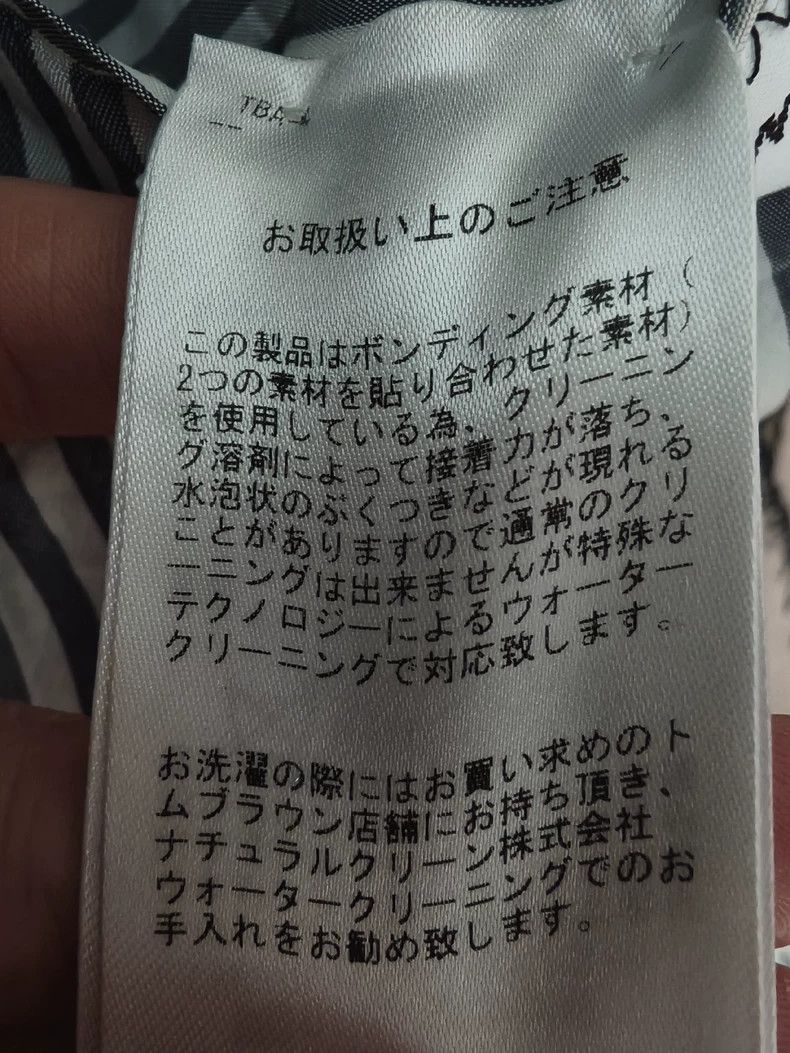 TBA
お取扱い上のご注意
この製品はボンディング素材（
2つの素材を貼り合わせた素材）
を使用している為、クリーニン
グ溶剤によって接着力が落ち、
水泡状のぶくつきなどが現れる
ことがありますので通常のクリ
ーニングは出来ませんが特殊な
テクノロジーによるウォーター
クリーニングで対応致します。
お洗濯の際にはお買い求めのト
ムブラウン店舗にお持ち頂き、
ナチュラルクリーン株式会社
ウォータークリーニングでのお
手入れをお勧め致します。